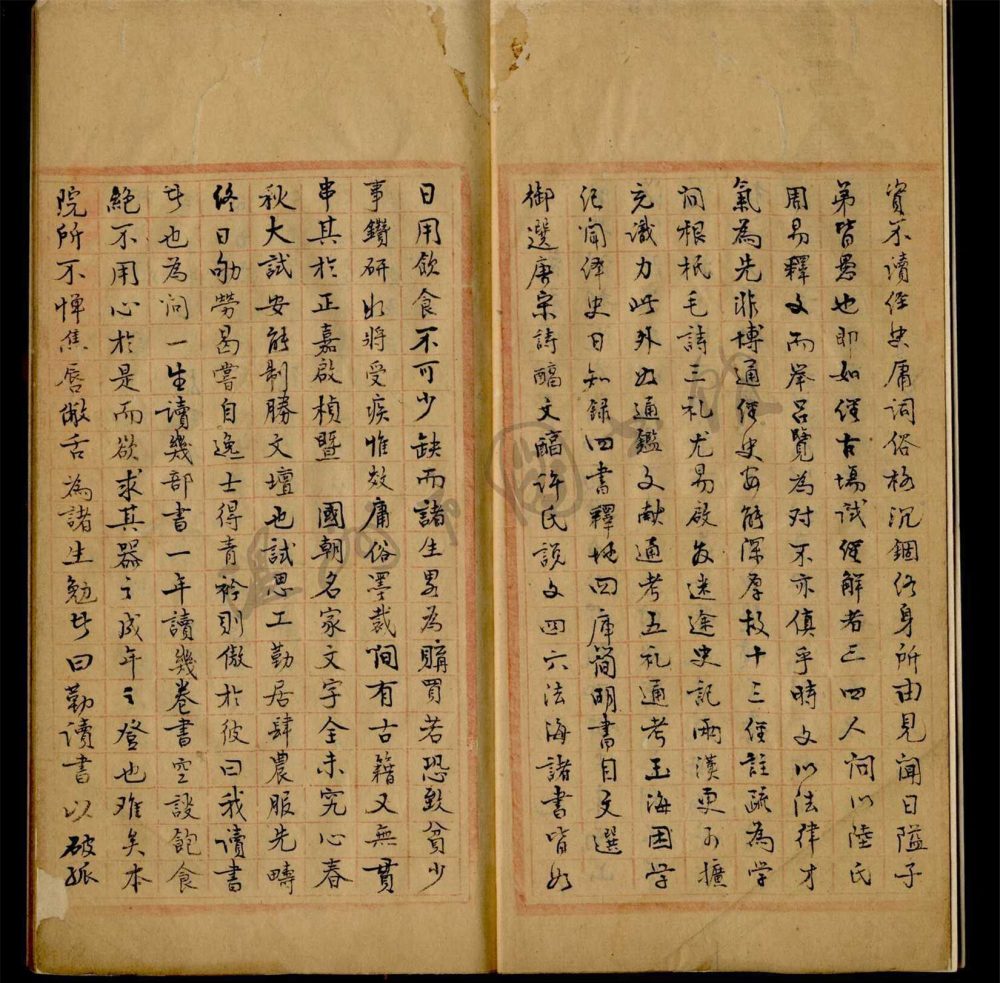 資不讀經史庸詞俗格沉錮終身所由見聞日隘子
弟皆愚也即如經古場試經解者三四人問以陸氏
周易釋文而举呂覽為对不亦傎乎時文以法律才
氣為先非博通經史安能深厚故十三經註疏為学
问根柢毛詩三礼尤易啟发迷途史記兩漢更可擴
充識力此外如通鑑文献通考五礼通考玉海困学
纪闻绎史日知録四書釋地四库簡明書目文選
御選唐宋詩醇文醇许氏説文四六法海諸書皆如
日用飲食不可少缺而諸生畧為購買若恐致貧少
事鑽研如將受疾惟效庸俗墨裁间有古籍又無貫
串其於正嘉啟楨暨　國朝名家文字全未究心春
秋大試安能制勝文壇也試思工勤居肆農服先疇
终日劬勞曷嘗自逸士得青衿則傲於彼曰我读書
者也為问一生讀幾部書一年讀幾卷書空設飽食
絶不用心於是而欲求其器之成年之登也难矣本
院所不惮焦唇敝舌為諸生勉者曰勤读書以破孤